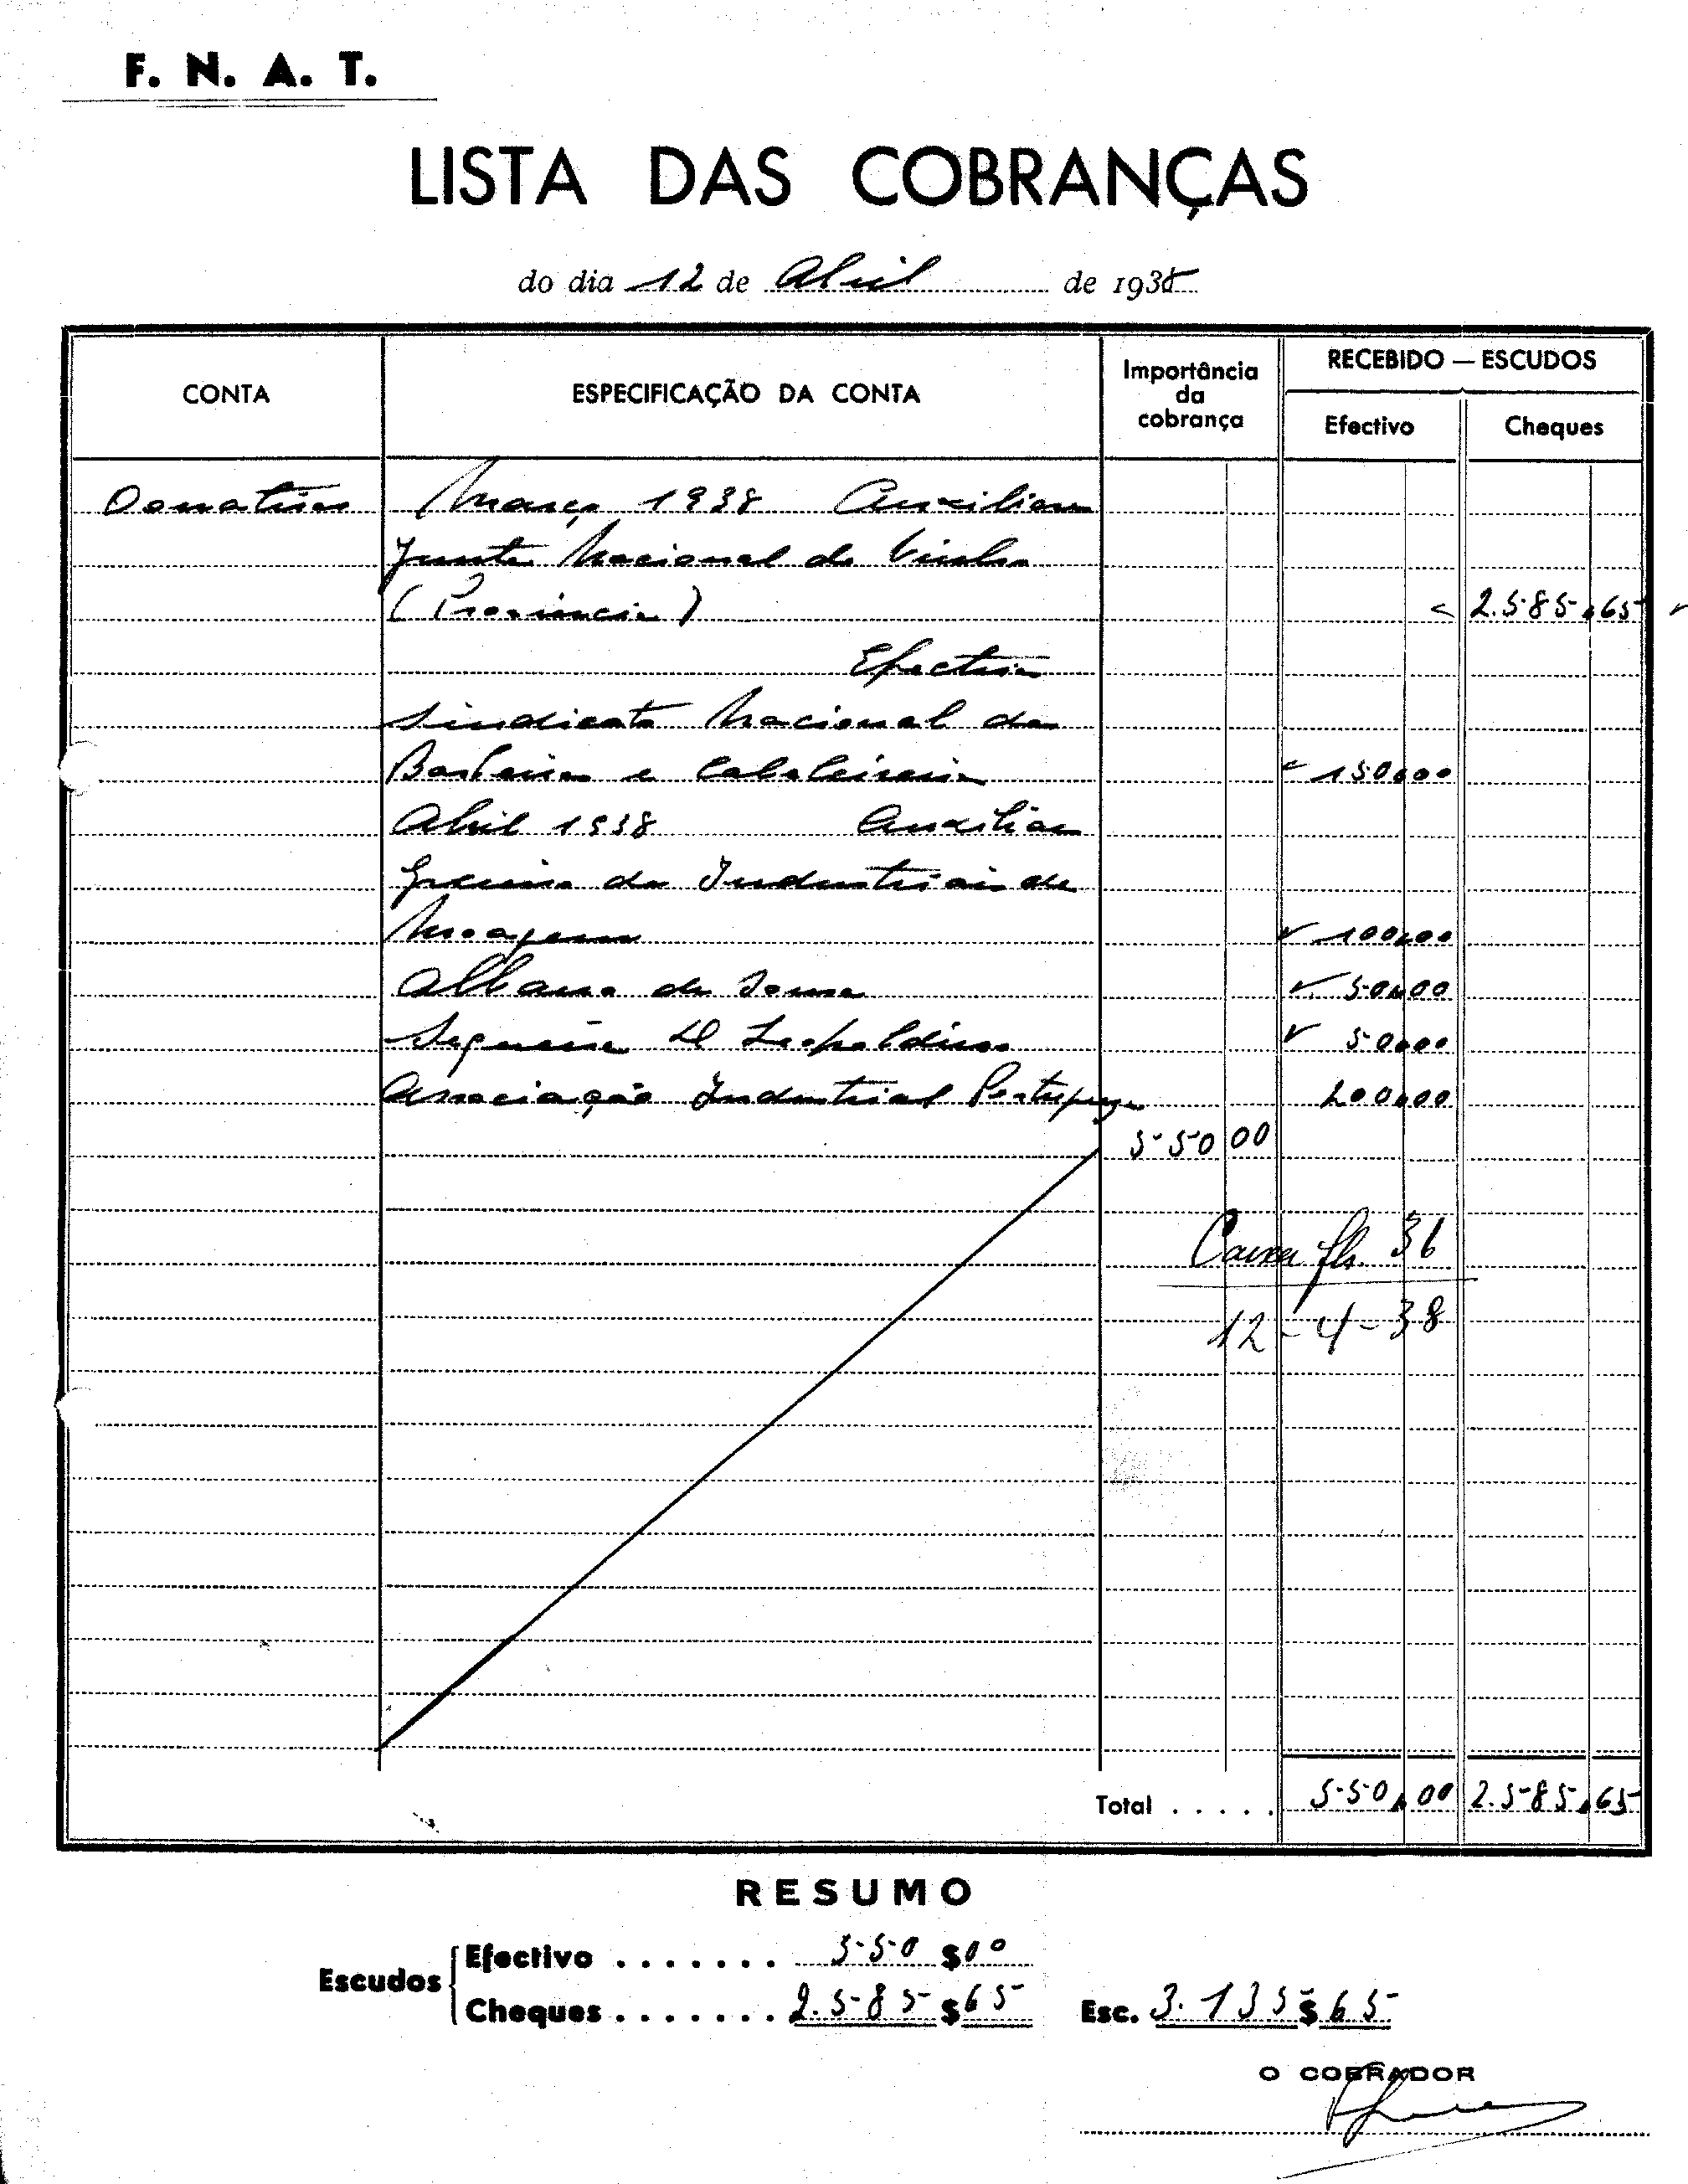 F. N. A. T.
LISTA DAS COBRANÇAS
do dia 12 de Abril de 1938
CONTA ESPECIFICAÇÃO DA CONTA Importância da cobrança RECEBIDO — ESCUDOS
Efectivo Cheques
Donativos Março 1938 Auxiliares
Junta Nacional do Vinho
(Provincia) 2.585,65
Efectivo
Sindicato Nacional dos
Barbeiros e Cabeleireiros 150,00
Abril 1938 Auxiliar
Gremio dos Industriais de
Moagem 100,00
Albano de Sousa 50,00
Sequeira Leopoldino 50,00
Associação Industrial Portuguesa 200,00
550 00
Caixa fls. 36
12-4-38
Total ..... 550,00 2.585,65
RESUMO
Escudos Efectivo ....... 550 $00
Cheques ....... 2.585 $65 Esc. 3.135 $ 65
O COBRADOR